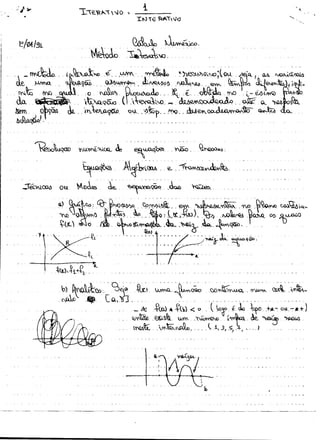 ITERATIVO = 1
INTERATIVO
Cálculo Numérico.
Método Iterativo.
1 - método iterativo é um método recursivo, (ou seja, as variáveis
de uma equação assumem diversos valores em tempos diferentes), infi-
nito no qual o valor procurado é obtido no i-ésimo
da iteração (iterativo - desencadeado até a resposta
sem opção de interação ou stop no desencadeamento antes da
solução).
Resolução numérica de equações não lineares.
Equações Algébricas e Transcendentes.
Técnicas ou Modos de separação das raízes.
a) Gráfico: O processo consiste em representar no plano cartesia-
no alguns pontos do tipo: (x, f(x)). Os valores para os quais
f(x) são aproximações da raiz da função.
y
x
raiz da equação.
f(x) = f1 - f2
b) Analítico: Seja f(x) uma função contínua num certo inter-
valo [a, b].
- Se f(a) * f(b) < 0 (logo é do tipo +a - ou -a +)
então existe um número ímpar de raízes reais
neste intervalo. (1, 3, 5, ...)
a
raízes
b